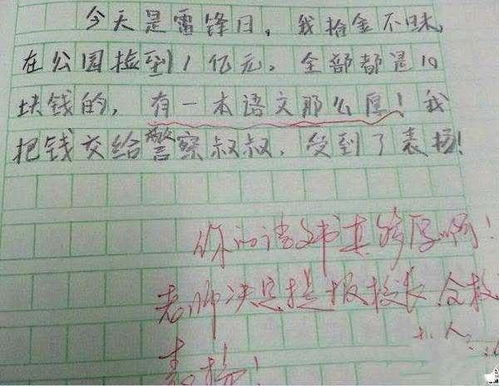 今天是雷锋日，我拾金不昧，
在公园捡到1亿元，全部都是10
块钱的，有一本语文那么厚！我
把钱交给警察叔叔，受到了表扬！
你的语文书真够厚啊！
老师决定提报校长，全校
表扬！